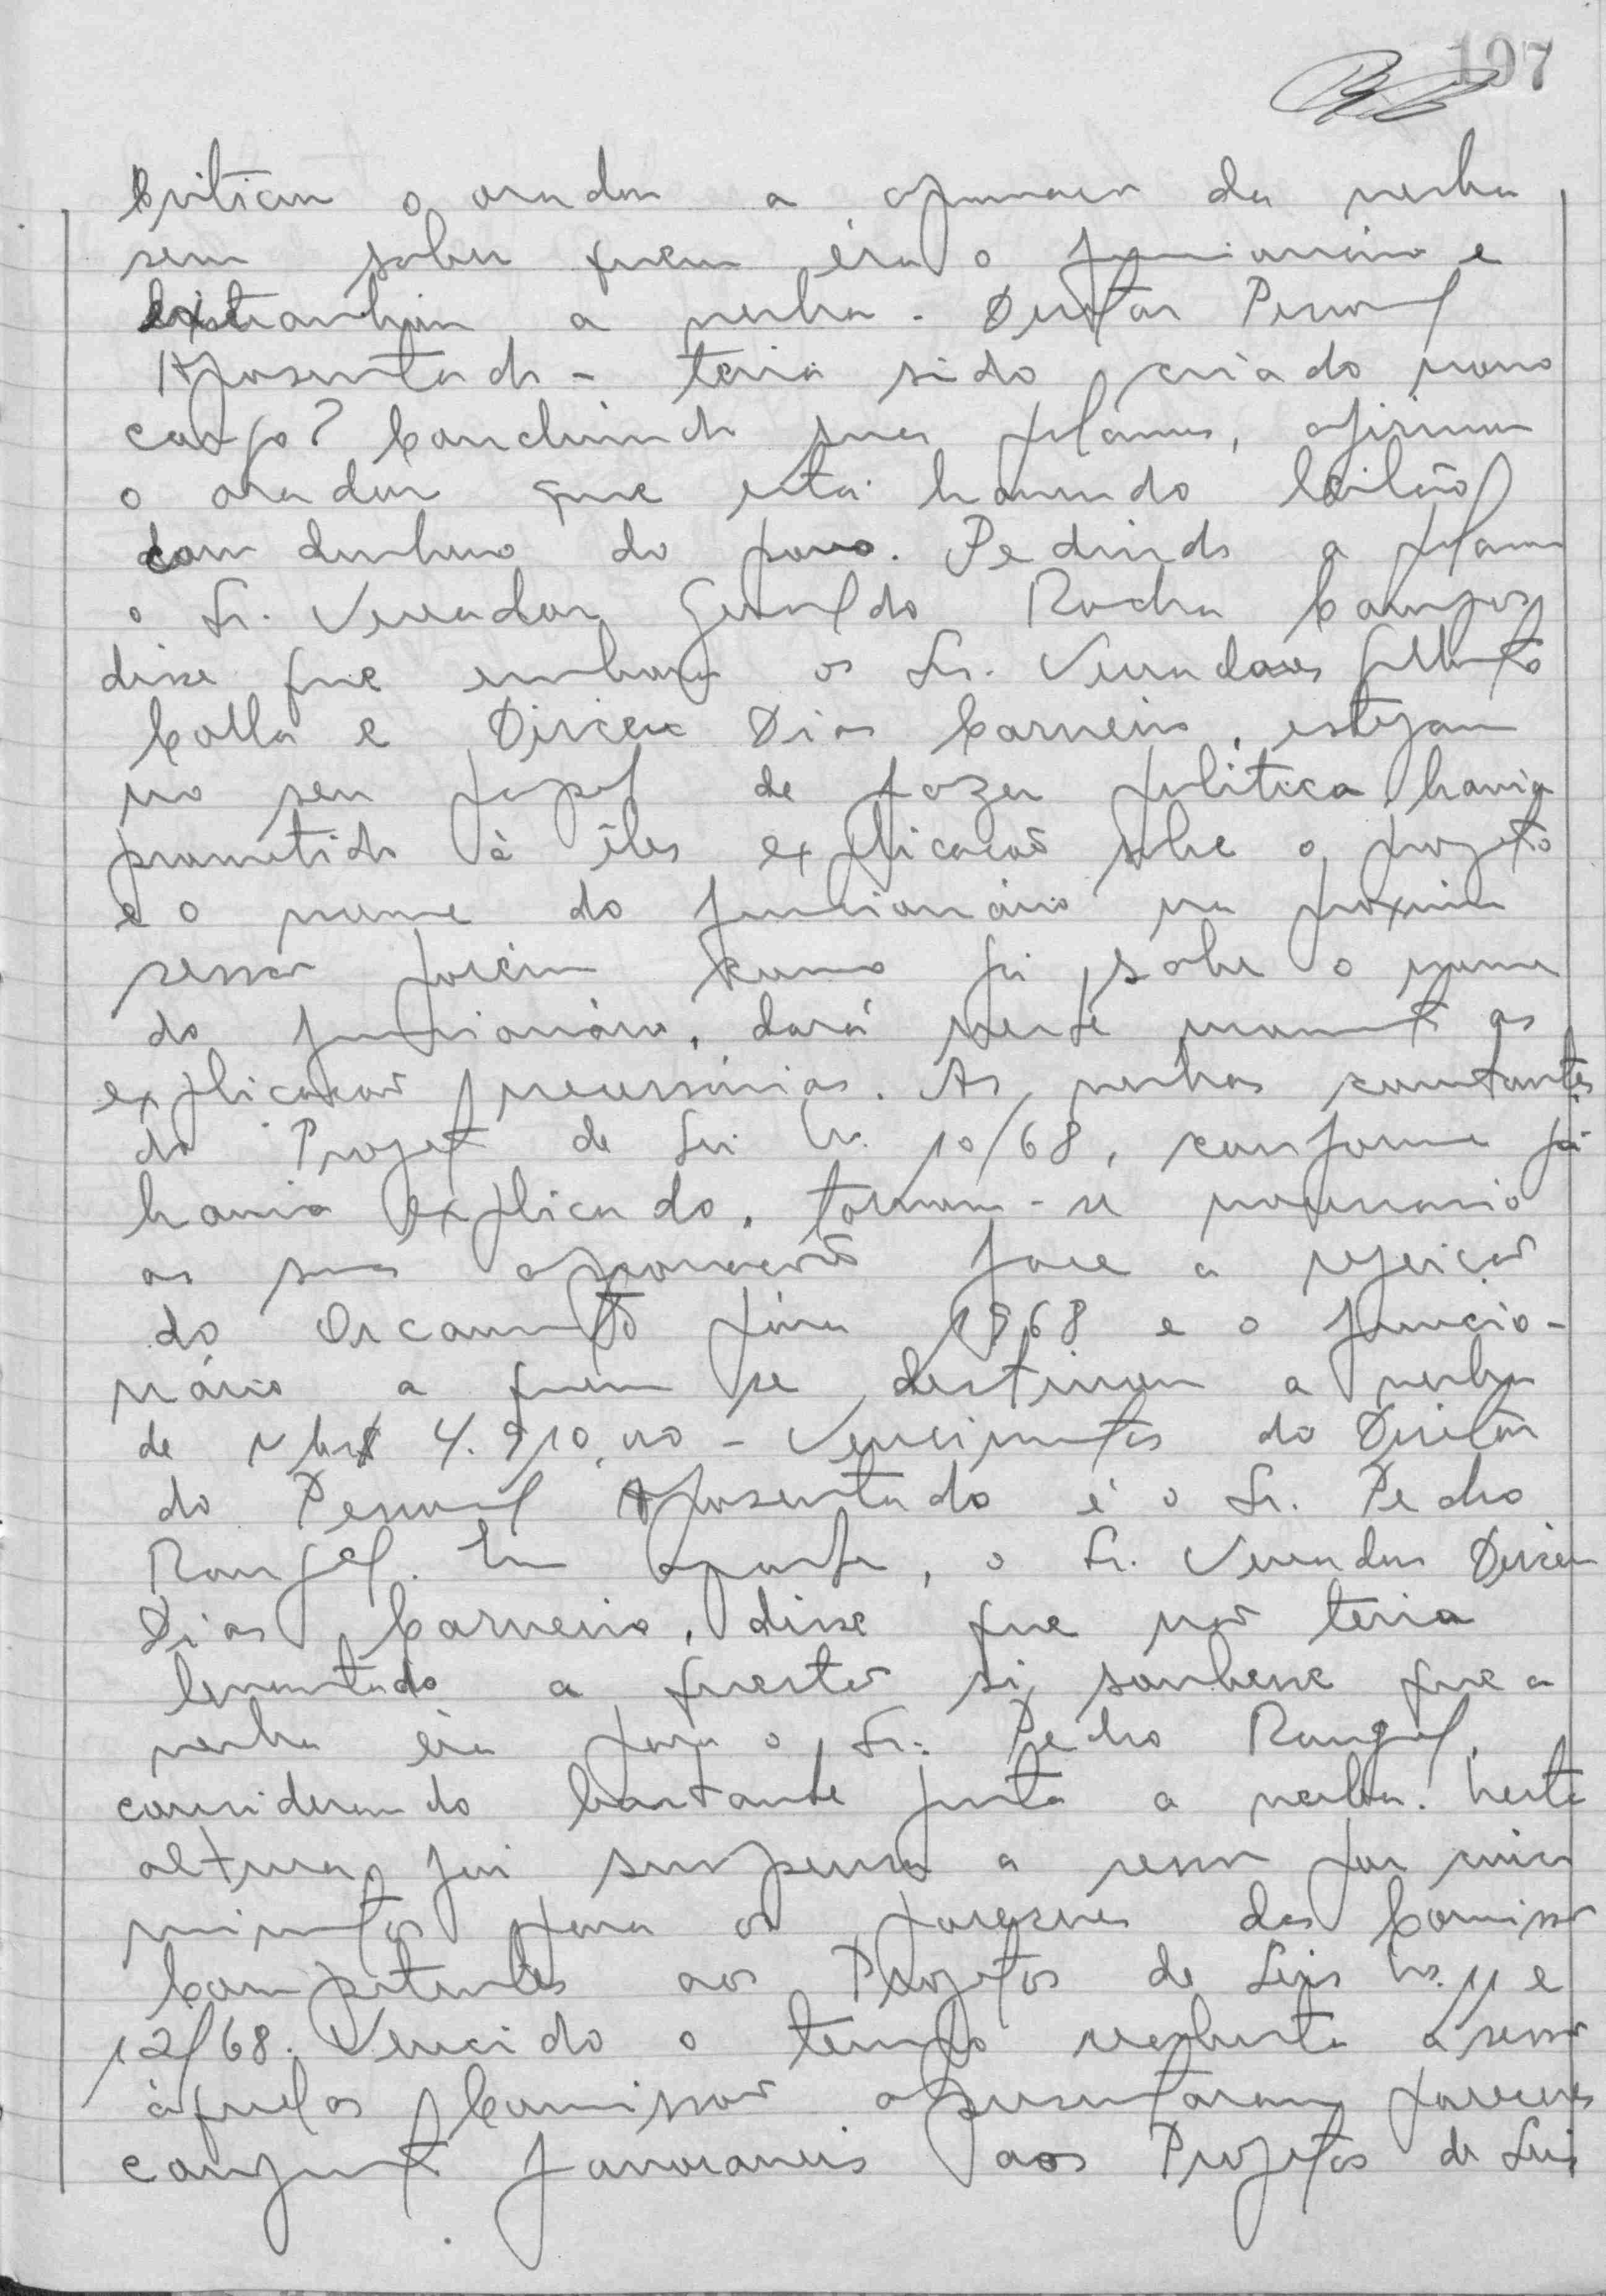 197
Criticou o orador a aprovação da verba
sem saber quem éra o funcionário e
estranhou a verba. Diretor Pessoal
Aposentado - teria sido criado novo
cargo? Concluindo sua palavra, afirmou
o orador que está havendo leilão
com dinheiro do povo. Pedindo a palavra
o Sr. Vereador Geraldo Rocha Campos
disse que embora os Srs. Vereadores Gilberto
Colla e Dirceu Dias Carneiro, estejam
no seu papel de fazer politica, havia
prometido à êles explicação sobre o projeto
e o nome do funcionário na proxima
sessão porém como já sabe o nome
do funcionário, dará neste momento as
explicações necessárias. As verbas constantes
do Projeto de Lei Nr. 10/68, conforme já
havia explicado, tornam-se necessario
as suas aprovações face a rejeição
do Orcamento para 1968 e o funcio-
nário a quem se destinou a verba
de NCr$ 4.910,00 - Vencimentos do Diretor
do Pessoal Aposentado é o Sr. Pedro
Rangel. Em aparte, o Sr. Vereador Dirceu
Dias Carneiro, disse que não teria
levantado a questão si soubesse que a
verba éra para o Sr. Pedro Rangel,
considerando bastante justa a verba. Nesta
altura, foi suspensa a sessão por cinco
minutos para os pareceres das Comissões
Competentes aos Projetos de Leis Nrs. 11 e
12/68. Vencido o tempo reaberta a sessão
àquelas Comissões apresentaram pareceres
conjunto favoraveis aos Projetos de Leis